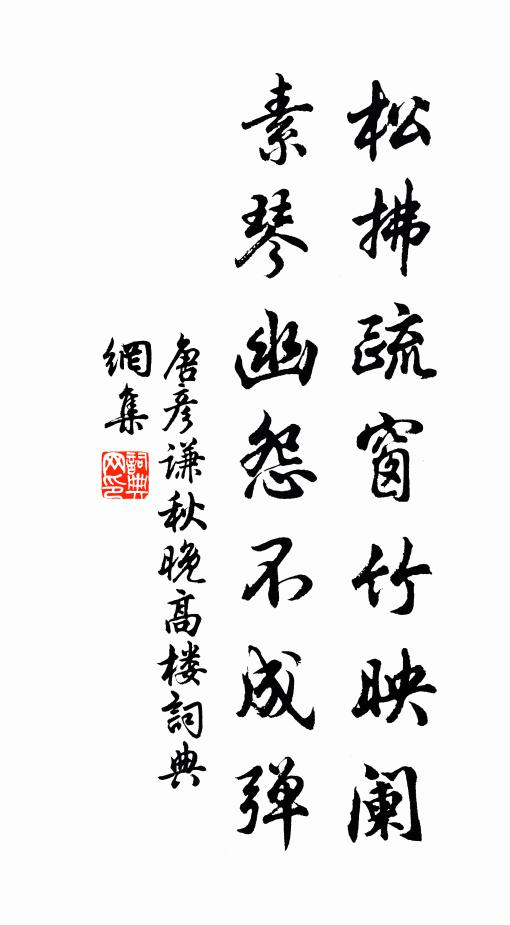 松拂疏窗竹映阑
素琴幽怨不成弹
唐彦谦秋晚高楼詞典
網集
詞典網印